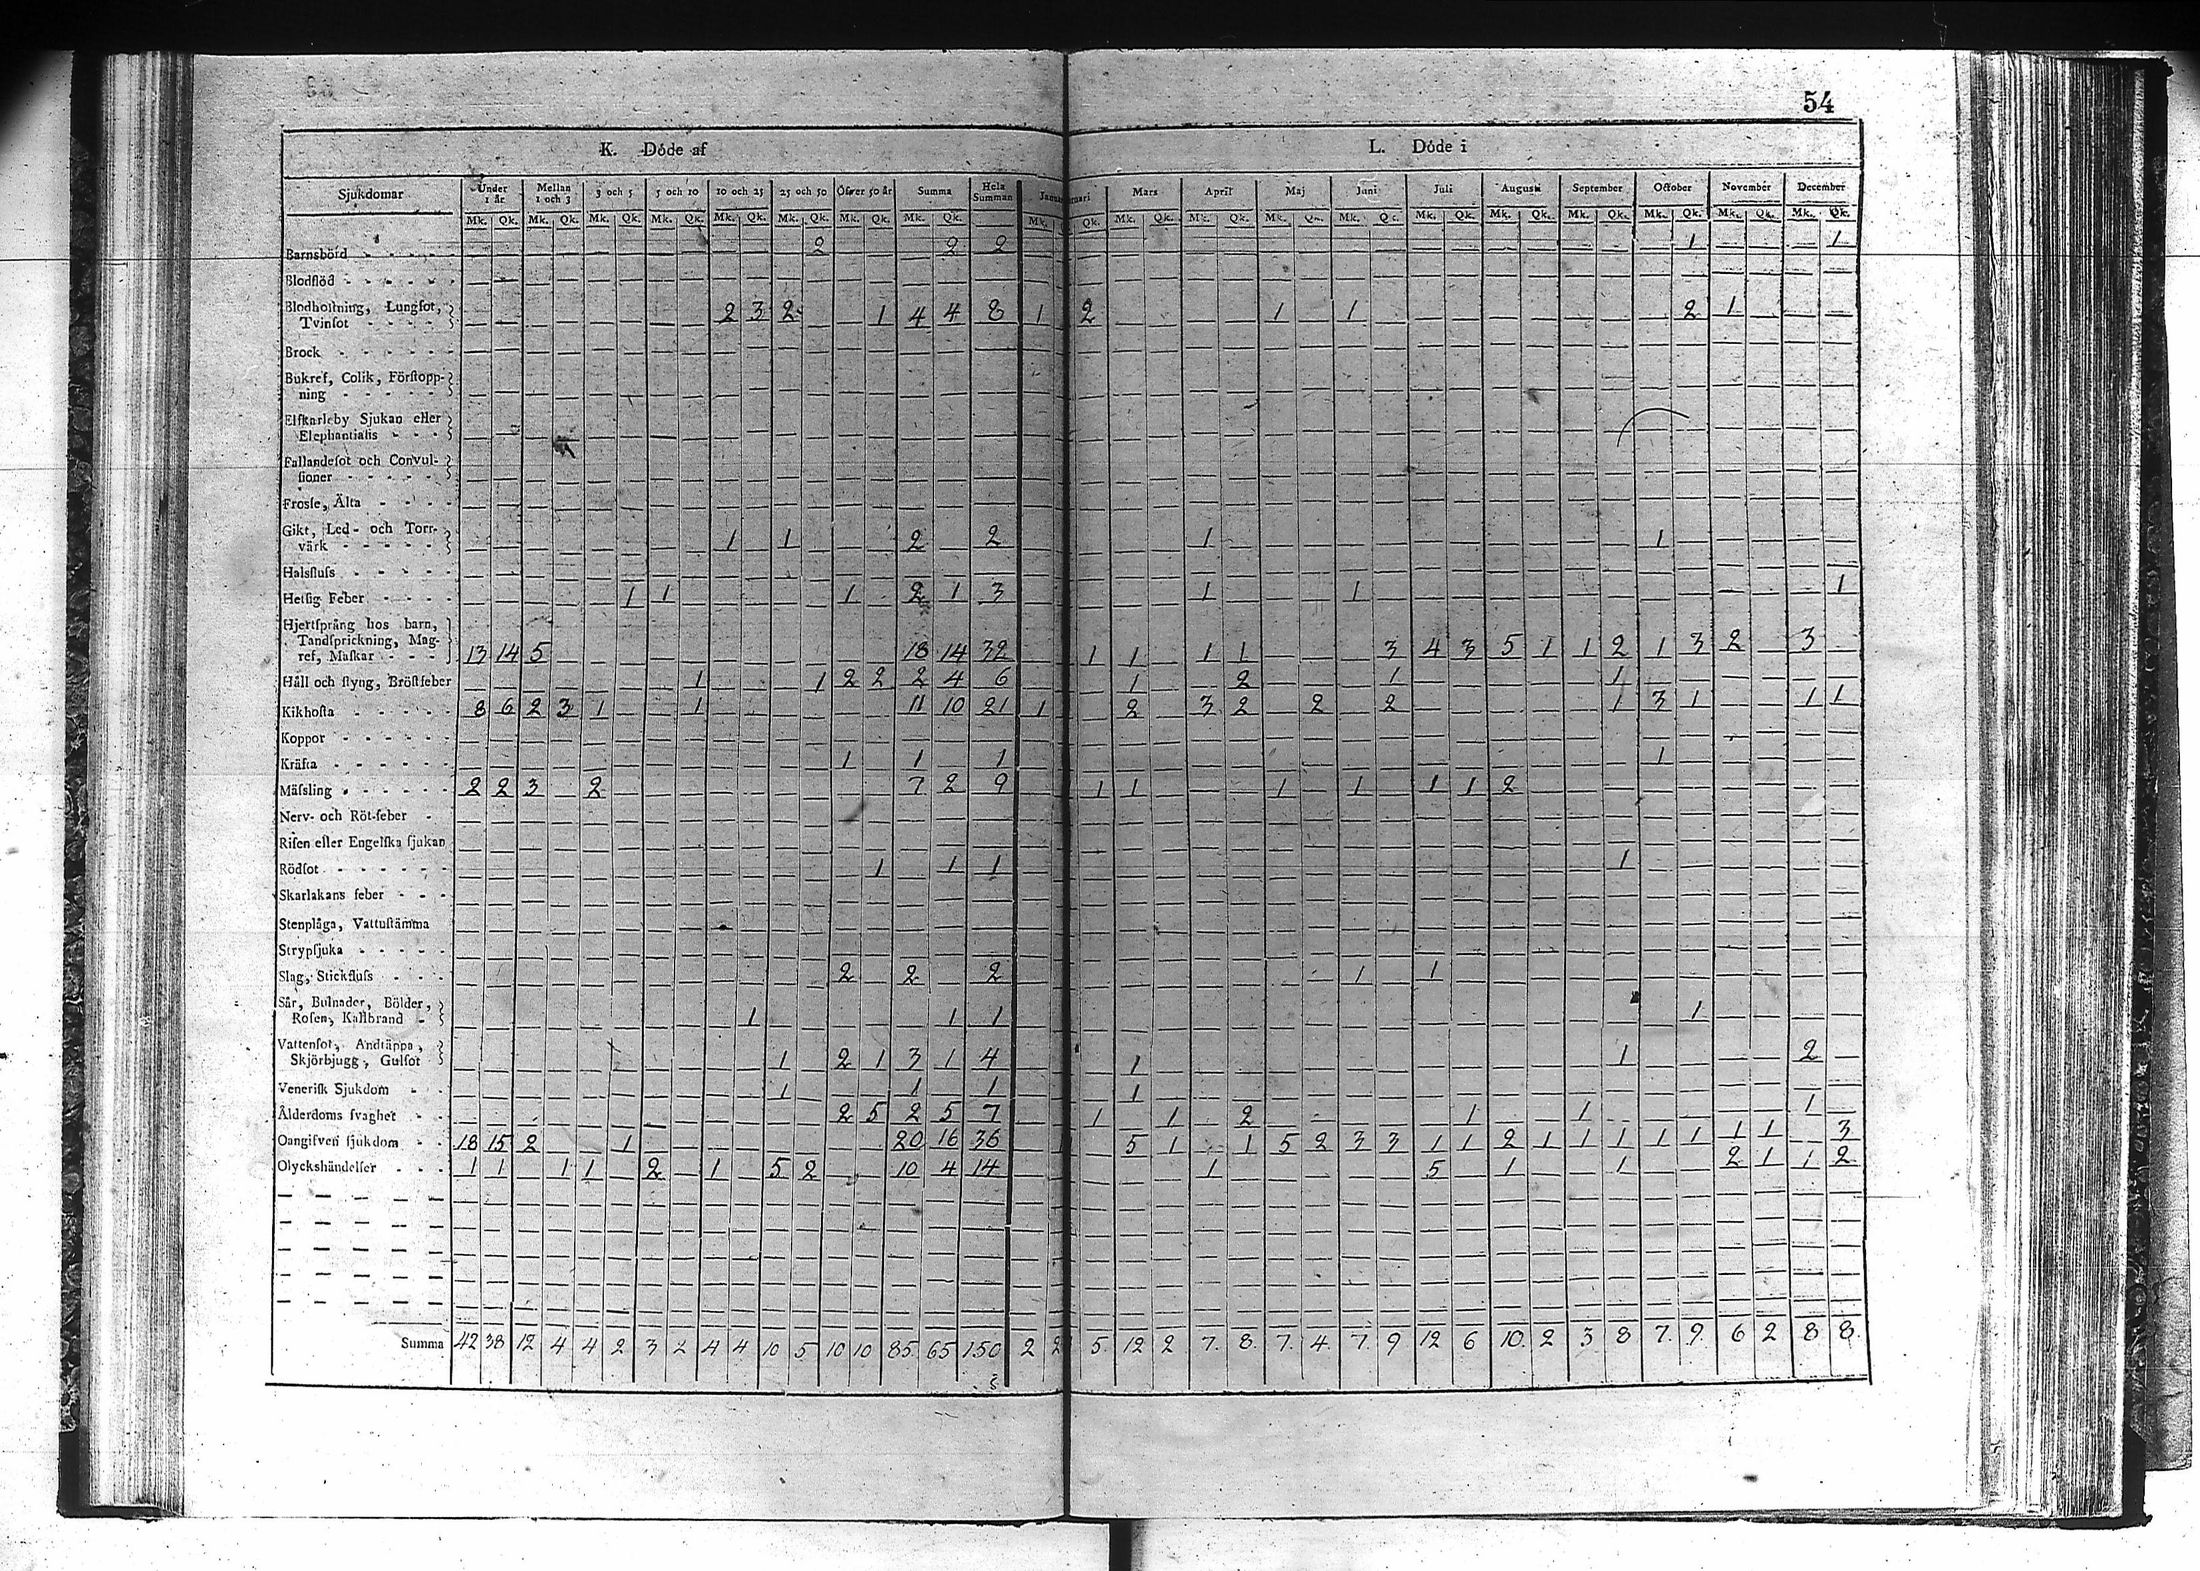 54
K. Dóde af L. Dóde i
Sjukdomar Under 1 år Mellan 1 och 3 3 och 5 5 och 10 10 och 25 25 och 50 Öfver 50 år Summa Hela Summan Januari Mars April Maj Juni Juli Augusti September October November December
Mk. Qk. Mk. Qk. Mk. Qk. Mk. Qk. Mk. Qk. Mk. Qk. Mk. Qk. Mk. Qk. Mk. Qk. Mk. Qk. Mk. Qk. Mk. Qk. Mk. Qk. Mk. Qk. Mk. Qk. Mk. Qk. Mk. Qk. Mk. Qk. Mk. Qk.
Barnsbörd 2 2 2 1 1
Blodflöd
Blodhostning, Lungsot,
Tvinsot 2 3 2 1 4 4 8 1 2 1 1 2 1
Brock
Bukref, Colik, Förstopp-
ning
Elfkarleby Sjukan eller
Elephantiasis
Fallandesot och Convul-
sioner
Frossa, Älta
Gikt, Led- och Torr-
värk 1 1 2 2 1 1
Halsfluss
Hetsig Feber 1 1 1 2 1 3 1 1 1
Hjertsprång hos barn,
Tandsprickning, Mag-
ref, Maskar 13 14 5 18 14 32 1 1 1 1 3 4 3 5 1 1 2 1 3 2 3
Håll och styng, Bröstfeber 1 1 2 2 2 4 6 1 2 1 1
Kikhosta 8 6 2 3 1 1 11 10 21 1 2 3 2 2 2 1 3 1 1 1
Koppor
Kräfta 1 1 1 1
Mässling 2 2 3 2 7 2 9 1 1 1 1 1 1 2
Nerv- och Röt-feber
Risen eller Engelska sjukan
Rödsot 1 1 1 1
Skarlakans feber
Stenplåga, Vattustämma
Strypsjuka
Slag, Stickfluss 2 2 2 1 1
Sår, Bulnader, Bölder,
Rosen, Kallbrand 1 1 1 1
Vattensot, Andtäppa,
Skjörbjugg, Gulsot 1 2 1 3 1 4 1 1 2
Venerisk Sjukdom 1 1 1 1
Ålderdoms svaghet 2 5 2 5 7 1 1 2 1 1 1
Oangifven sjukdom 18 15 2 1 20 16 36 5 1 1 5 2 3 3 1 1 2 1 1 1 1 1 1 1 3
Olyckshändelser 1 1 1 1 2 1 5 2 10 4 14 1 5 1 1 2 1 1 2
Summa 42 38 12 4 4 2 3 2 4 4 10 5 10 10 85 65 150 2 2 5 12 2 7 8 7 4 7 9 12 6 10 2 3 8 7 9 6 2 8 8